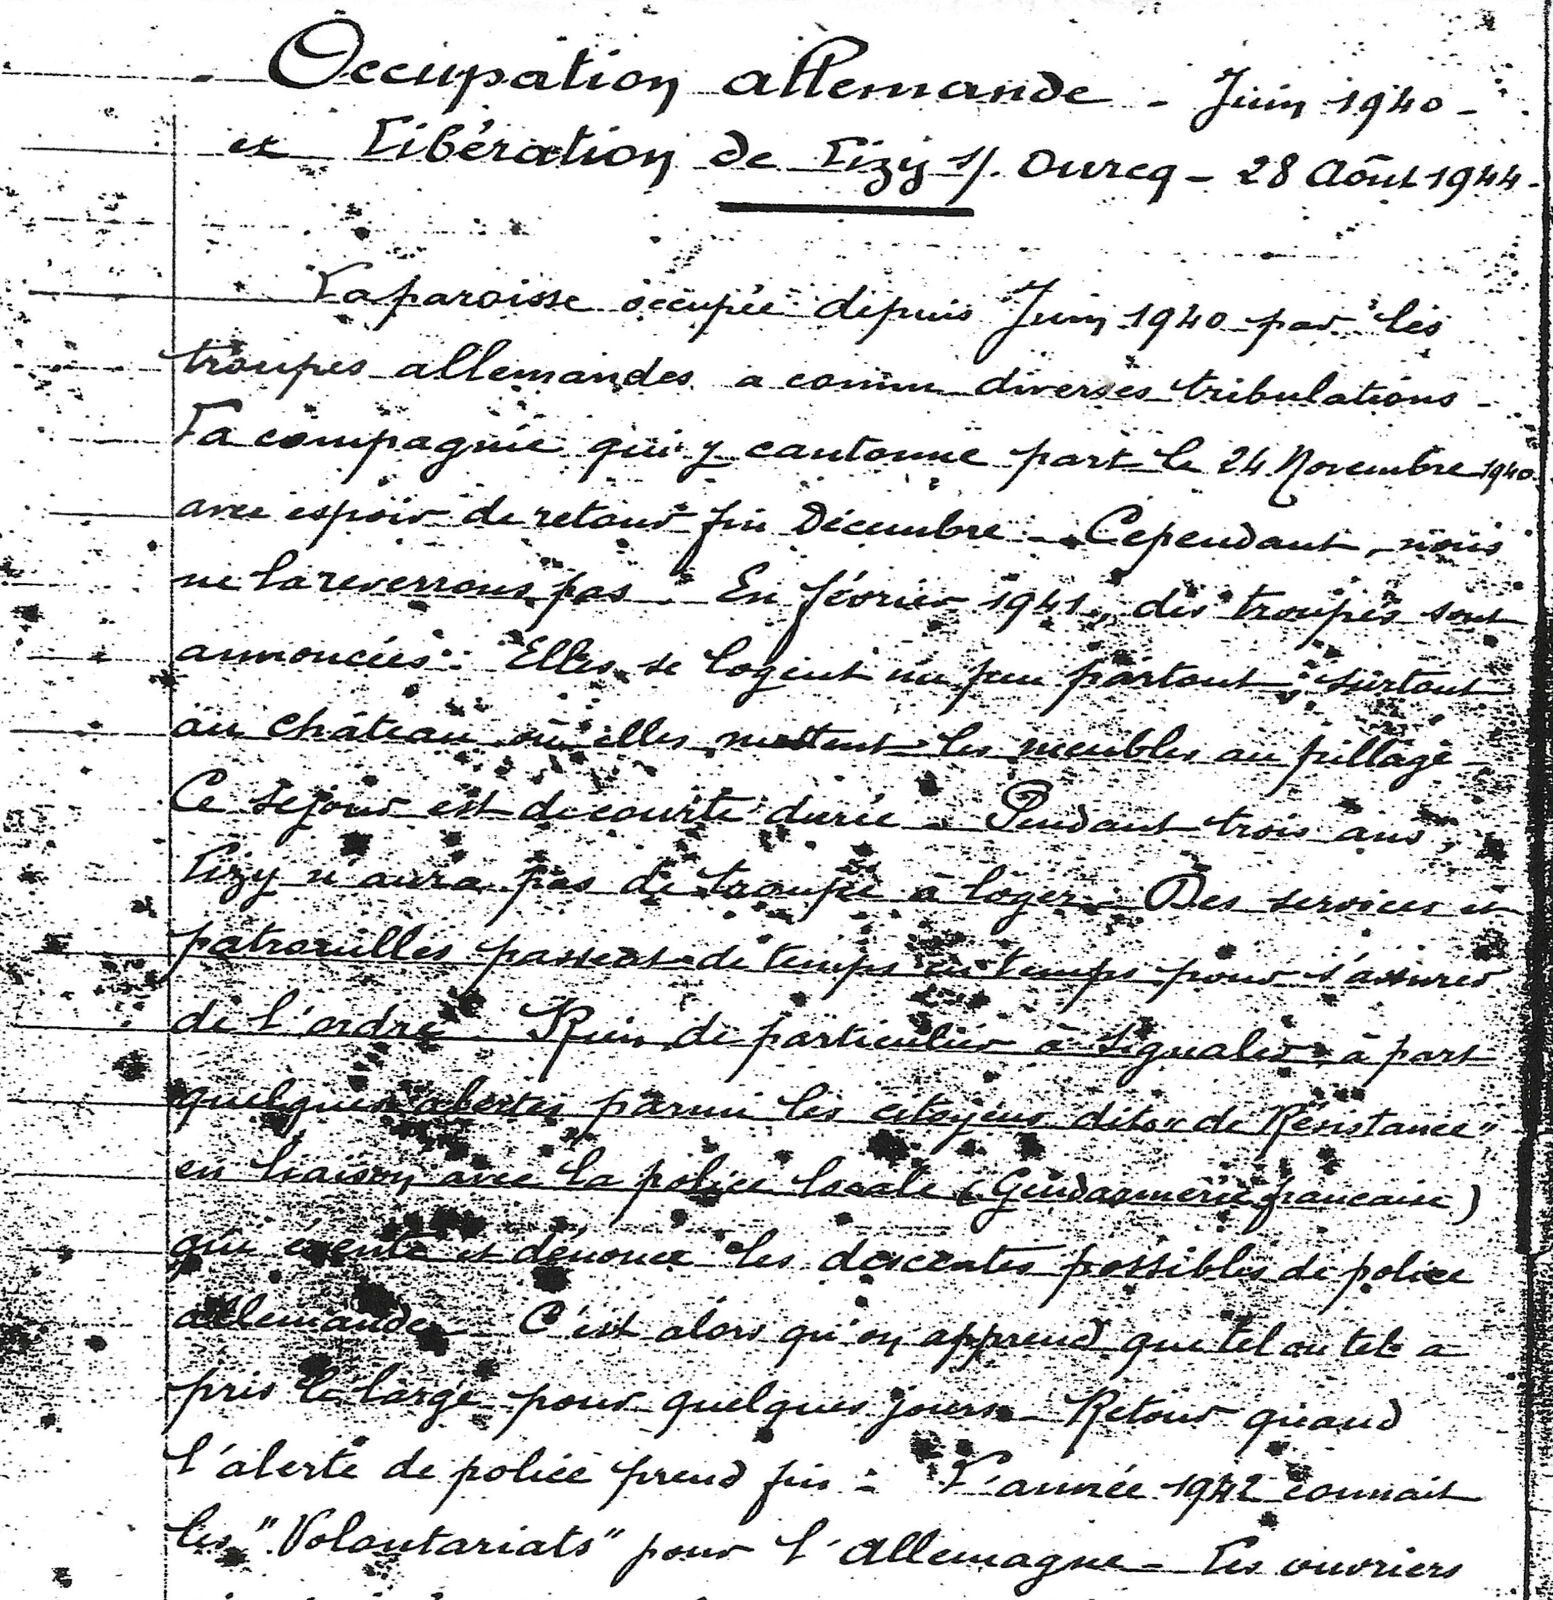 Occupation allemande - Juin 1940 -
et Libération de Lizy s/. Ourcq - 28 Août 1944 -
La paroisse occupée depuis Juin 1940 par les
troupes allemandes a connu diverses tribulations -
La compagnie qui y cantonne part le 24 Novembre 1940
avec espoir de retour fin Décembre - Cependant, nous
ne la reverrons pas. En février 1941, des troupes sont
annoncées. Elles se logent un peu partout, surtout
au château où elles mettent les meubles au pillage -
Ce séjour est de courte durée - Pendant trois ans,
Lizy n'aura pas de troupe à loger - Des services et
patrouilles passent de temps en temps pour s'assurer
de l'ordre. Rien de particulier à signaler à part
quelques alertes parmi les citoyens dits "de Résistance"
en liaison avec la police locale (Gendarmerie française)
qui évente et dénonce les descentes possibles de police
allemande - C'est alors qu'on apprend que tel ou tel a
pris le large pour quelques jours - Retour quand
l'alerte de police prend fin - L'année 1942 connait
les "Volontariats" pour l'Allemagne - Les ouvriers